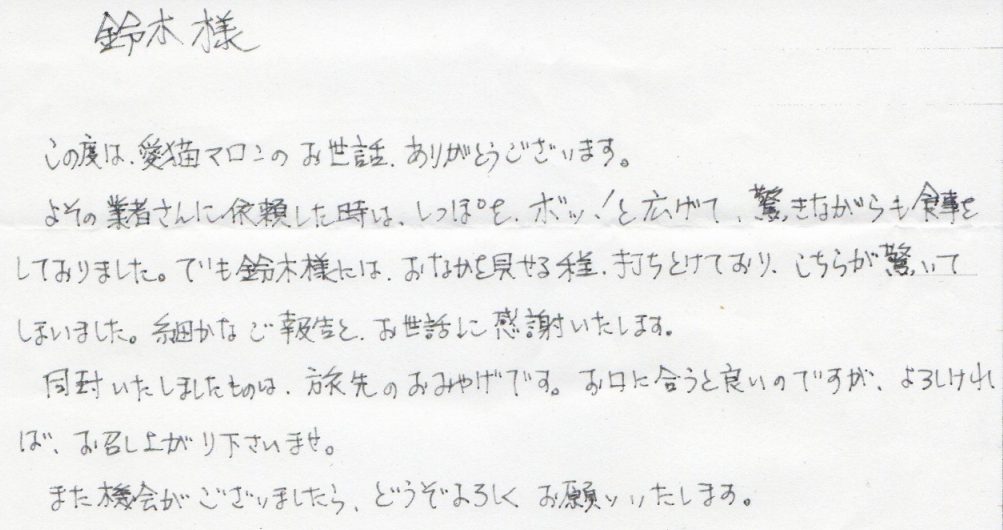 鈴木様
この度は、愛猫マロンのお世話、ありがとうございます。
よその業者さんに依頼した時は、しっぽを、ボッ!と広げて、驚きながらも食事を
しておりました。でも鈴木様には、おなかを見せる程、打ちとけており、こちらが驚いて
しまいました。細かなご報告と、お世話に感謝いたします。
同封いたしましたものは、旅先のおみやげです。お口に合うと良いのですが、よろしけれ
ば、お召し上がり下さいませ。
また機会がございましたら、どうぞよろしくお願いいたします。